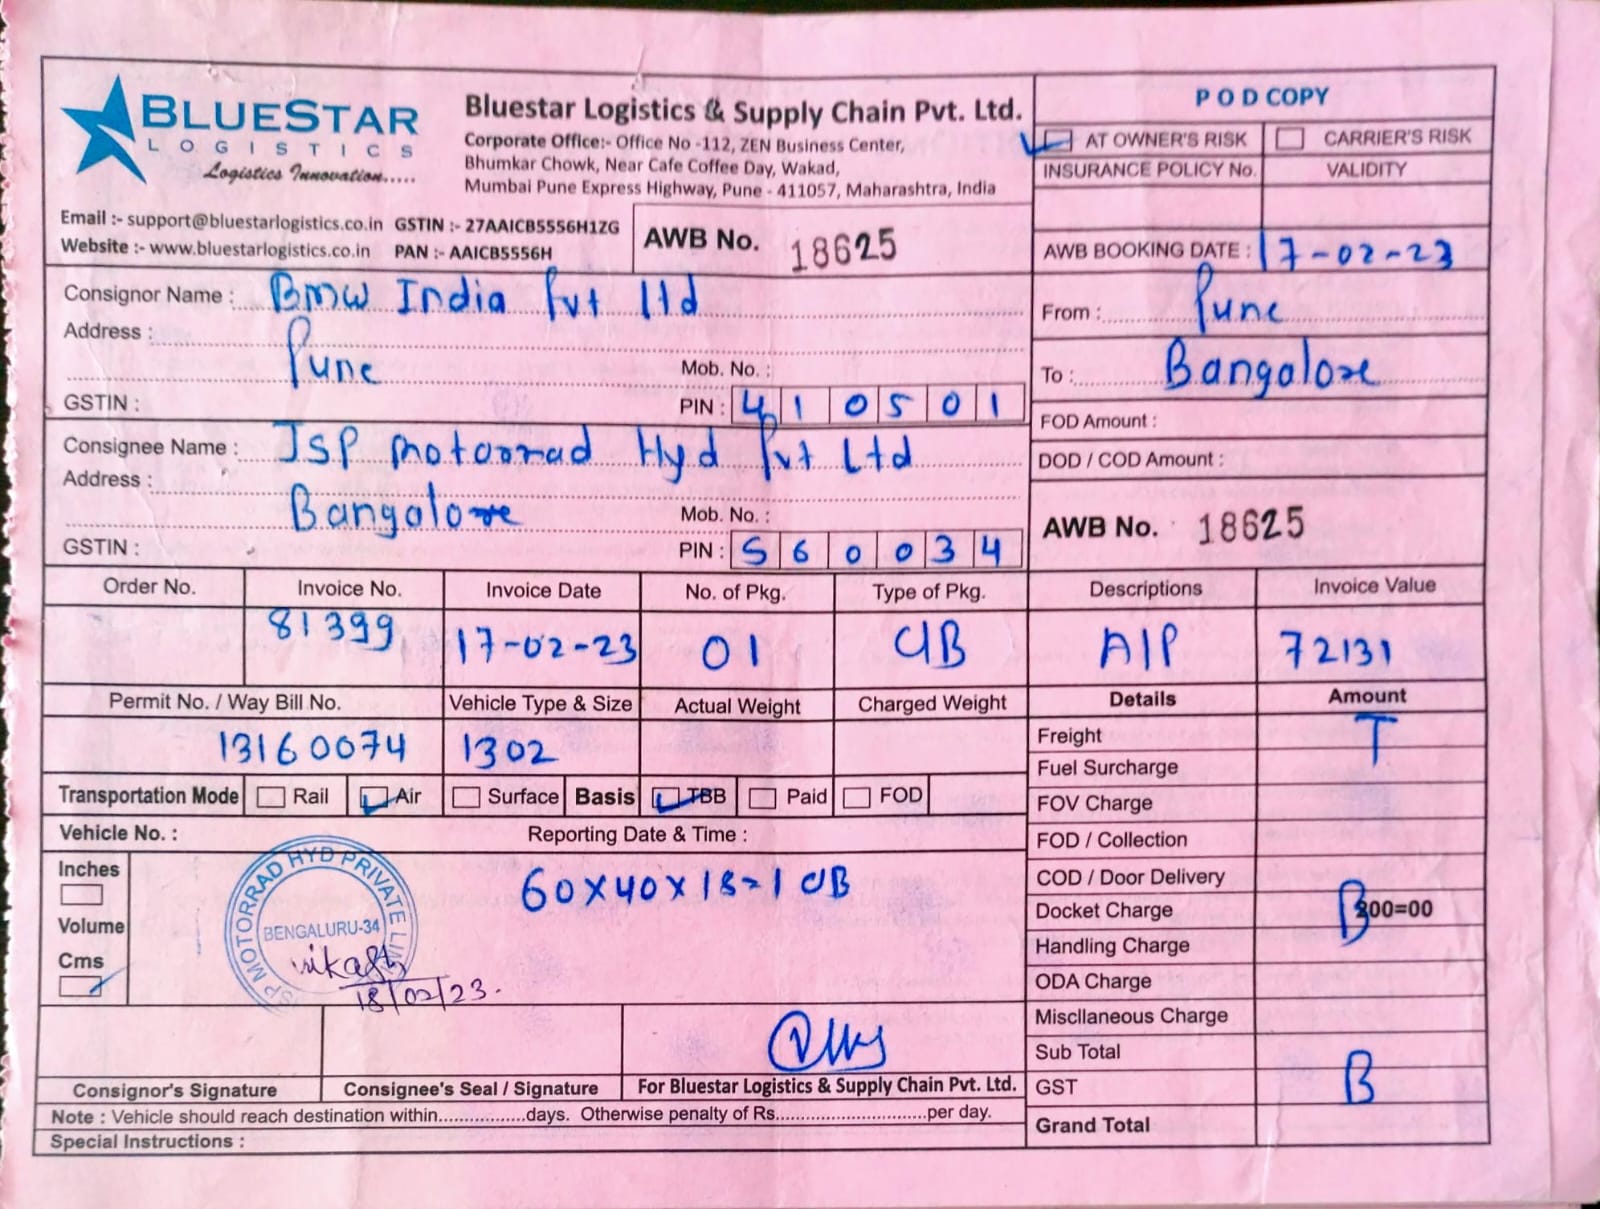 BLUESTAR
LOGISTICS
Logistics Innovation.....
Bluestar Logistics & Supply Chain Pvt. Ltd.
Corporate Office:- Office No -112, ZEN Business Center,
Bhumkar Chowk, Near Cafe Coffee Day, Wakad,
Mumbai Pune Express Highway, Pune - 411057, Maharashtra, India
Email :- support@bluestarlogistics.co.in GSTIN :- 27AAICB5556H1ZG
Website :- www.bluestarlogistics.co.in PAN :- AAICB5556H
AWB No. 18625
P O D COPY
AT OWNER'S RISK CARRIER'S RISK
INSURANCE POLICY No. VALIDITY
AWB BOOKING DATE : 17-02-23
Consignor Name : BMW India Pvt ltd
Address :
Pune
Mob. No. :
GSTIN : PIN : 410501
From : Pune
To : Bangalore
FOD Amount :
DOD / COD Amount :
Consignee Name : JSP Motorrad Hyd Pvt Ltd
Address :
Bangalore
Mob. No. :
GSTIN : PIN : 560034
AWB No. 18625
Order No. Invoice No. Invoice Date No. of Pkg. Type of Pkg. Descriptions Invoice Value
81399 17-02-23 01 CIB A/P 72131
Permit No. / Way Bill No. Vehicle Type & Size Actual Weight Charged Weight Details Amount
13160074 1302
Freight T
Fuel Surcharge
Transportation Mode Rail Air Surface Basis TBB Paid FOD
FOV Charge
Vehicle No. : Reporting Date & Time :
FOD / Collection
Inches
Volume
Cms
60X40X18=1 CIB
JSP MOTORRAD HYD PRIVATE
BENGALURU-34
18/02/23.
COD / Door Delivery
Docket Charge B 300=00
Handling Charge
ODA Charge
Miscllaneous Charge
Sub Total
GST B
Grand Total
Consignor's Signature Consignee's Seal / Signature For Bluestar Logistics & Supply Chain Pvt. Ltd.
Note : Vehicle should reach destination within................days. Otherwise penalty of Rs............................per day.
Special Instructions :